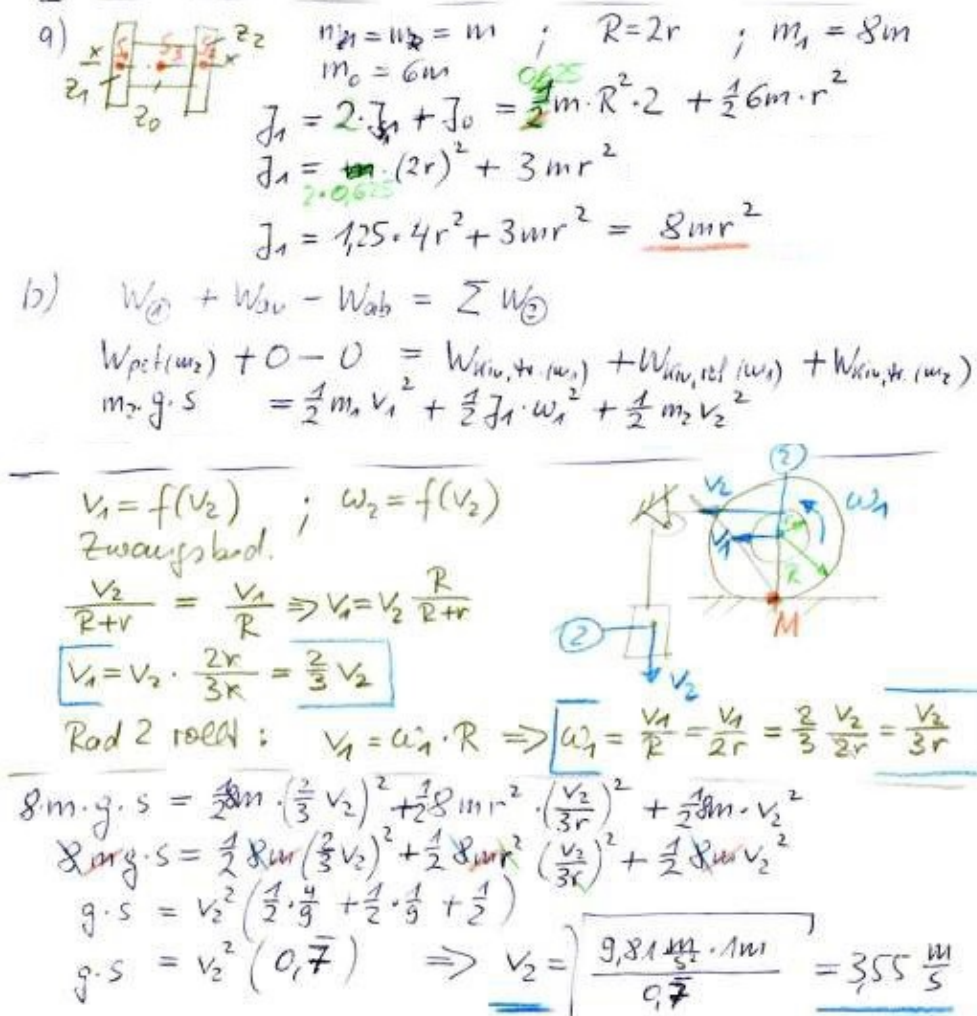 a) x S₁ S₃ S₂ x z₂ z₁ z₀
m = m ; R=2r ; m₁ = 8m
m₀ = 6m
0,625
J₁ = 2·J₁ + J₀ = ½ m·R²·2 + ½ 6m·r²
J₁ = m·(2r)² + 3mr²
2·0,625
J₁ = 1,25·4r² + 3mr² = 8mr²
b) W① + Wzu − Wab = Σ W②
Wpot(m₂) + 0 − 0 = Wkin,tr.(m₁) + Wkin,rot(m₁) + Wkin,tr.(m₂)
m₂·g·s = ½ m₁ v₁² + ½ J₁·ω₁² + ½ m₂ v₂²
V₁ = f(V₂) ; ω₂ = f(V₂)
Zwangsbed.
V₂/(R+r) = V₁/R ⇒ V₁ = V₂ R/(R+r)
V₁ = V₂ · 2r/3r = ⅔ V₂
② V₂ V₁ r R ω₁ M ② V₂
Rad 2 rollt : V₁ = ω₁·R ⇒ ω₁ = V₁/R = V₁/2r = ⅔ V₂/2r = V₂/3r
8·m·g·s = ½8m·(⅔ V₂)² + ½8mr²·(V₂/3r)² + ½8m·V₂²
8mg·s = ½ 8m(⅔ V₂)² + ½ 8mr² (V₂/3r)² + ½ 8m V₂²
g·s = V₂² (½·4/9 + ½·1/9 + ½)
g·s = V₂² (0,7̄) ⇒ V₂ = √(9,81 m/s² · 1m / 0,7̄) = 3,55 m/s